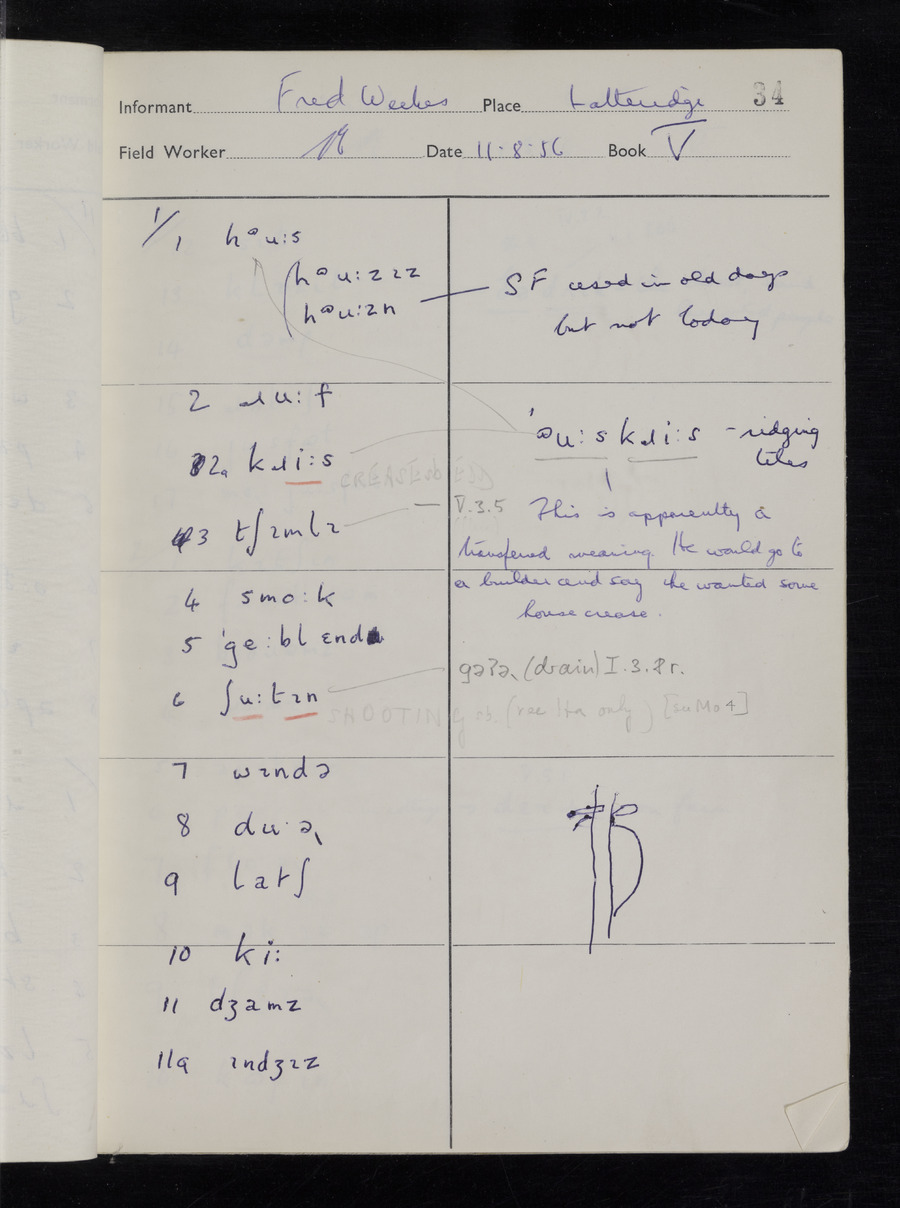 Informant Fred Weekes Place Latteridge 34
Field Worker Date 11·8·56 Book V
1/1 həu:s
həu:zɪz
həu:zn — SF used in old days
but not today
2 ɹu:f
'əu:s kɹi:s – ridging
tiles
2a kɹi:s
CREASE(D)
3 tʃɪmlɪ — V.3.5 This is apparently a
transferred meaning. He would go to
a builder and say he wanted some
house crease.
4 smo:k
5 'ge:bl ɛnd
6 ʃu:tɪn
(drain) I.3.8r.
SHOOTING sb. (rec Ha only) [suMo4]
7 wɪndə
8 du·ə
9 latʃ
10 ki:
11 dʒamz
11a ɪndʒɪz